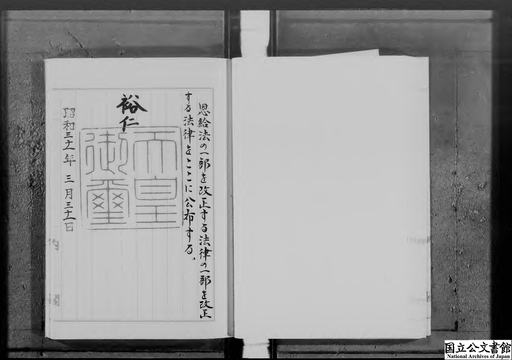 恩給法の一部を改正する法律の一部を改正
する法律をここに公布する。
裕仁
天皇
御璽
昭和三十一年三月三十一日
国立公文書館
National Archives of Japan